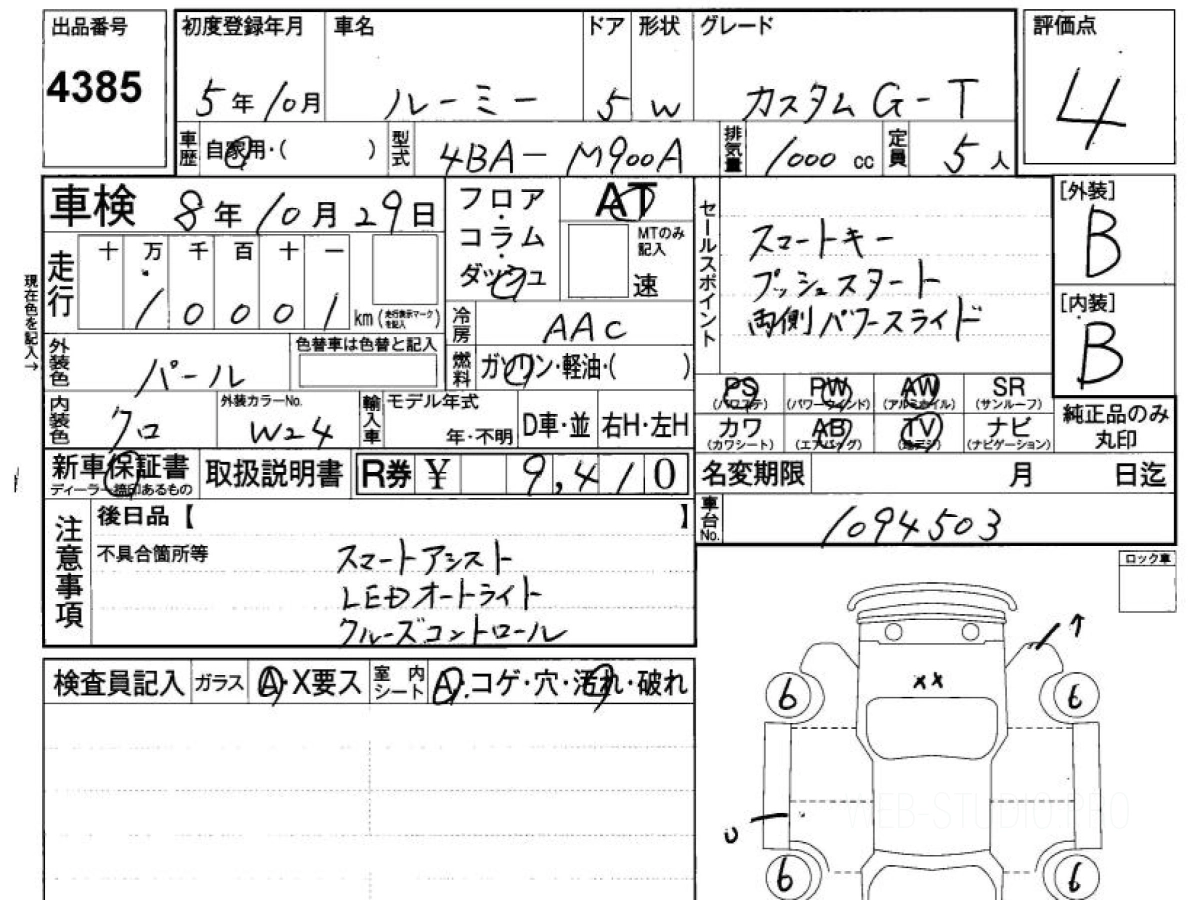 出品番号 初度登録年月 車名 ドア 形状 グレード 評価点
4385 5年10月 ルーミー 5 W カスタム G-T 4
車歴 自家用・( ) 型式 4BA-M900A 排気量 1000 cc 定員 5人
車検 8年10月29日
フロア・コラム・ダッシュ AT MTのみ記入 速
セールスポイント
スマートキー
プッシュスタート
両側パワースライド
[外装] B
[内装] B
現在色を記入→
走行 十 万 千 百 十 一
10001 km (走行表示マークを記入)
冷房 AAC
外装色 パール 色替車は色替と記入
燃料 ガソリン・軽油・( )
PS (パワステ) PW (パワーウインド) AW (アルミホイル) SR (サンルーフ)
カワ (カワシート) AB (エアバッグ) TV (地デジ) ナビ (ナビゲーション)
純正品のみ丸印
内装色 クロ 外装カラーNo. W24 輸入車 モデル年式 年・不明 D車・並 右H・左H
新車保証書 ディーラー捺印あるもの 取扱説明書 R券 ¥ 9,410
名変期限 月 日迄
車台No. 1094503
注意事項
後日品【 】
不具合箇所等
スマートアシスト
LEDオートライト
クルーズコントロール
ロック車
検査員記入 ガラス A・X要ス 室内シート A・コゲ・穴・汚れ・破れ
↑
xx
6 6
U
6 6
WEB-STUDIO.PRO